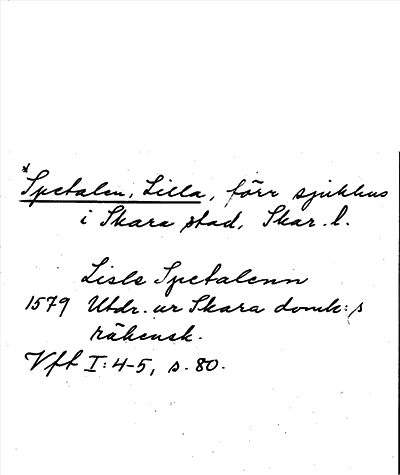 *Spetalen, Lilla, förr sjukhus
i Skara stad, Skar. l.
Lisle Spetalenn
1579 Utdr. ur Skara domk:s
räkensk.
Vft I: 4-5, s. 80.